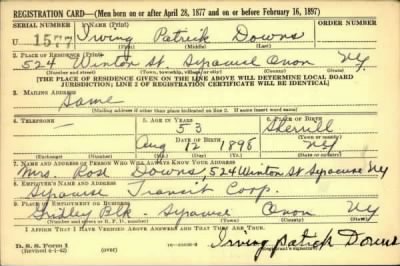 REGISTRATION CARD—(Men born on or after April 28, 1877 and on or before February 16, 1897)
SERIAL NUMBER 1. NAME (Print)
U 1577 Irving Patrick Downs
(First) (Middle) (Last)
2. PLACE OF RESIDENCE (Print)
524 Winton St. Syracuse Onon Ny
(Number and street) (Town, township, village, or city) (County) (State)
[THE PLACE OF RESIDENCE GIVEN ON THE LINE ABOVE WILL DETERMINE LOCAL BOARD
JURISDICTION; LINE 2 OF REGISTRATION CERTIFICATE WILL BE IDENTICAL]
3. MAILING ADDRESS
Same
(Mailing address if other than place indicated on line 2. If same insert word same)
4. TELEPHONE 5. AGE IN YEARS 6. PLACE OF BIRTH
— 53 Sherrill
DATE OF BIRTH (Town or county)
Aug 12 Ny
(Exchange) (Number) (Mo.) (Day) (Yr.) (State or country)
7. NAME AND ADDRESS OF PERSON WHO WILL ALWAYS KNOW YOUR ADDRESS
Mrs. Rose Downs, 524 Winton St Syracuse Ny
8. EMPLOYER'S NAME AND ADDRESS
Syracuse Transit Coop.
9. PLACE OF EMPLOYMENT OR BUSINESS
Gridley Blk - Syracuse Onon Ny
(Number and street or R. F. D. number) (Town) (County) (State)
I AFFIRM THAT I HAVE VERIFIED ABOVE ANSWERS AND THAT THEY ARE TRUE.
D. S. S. Form 1
(Revised 4-1-42) (over) Irving Patrick Downs
(Registrant's signature)